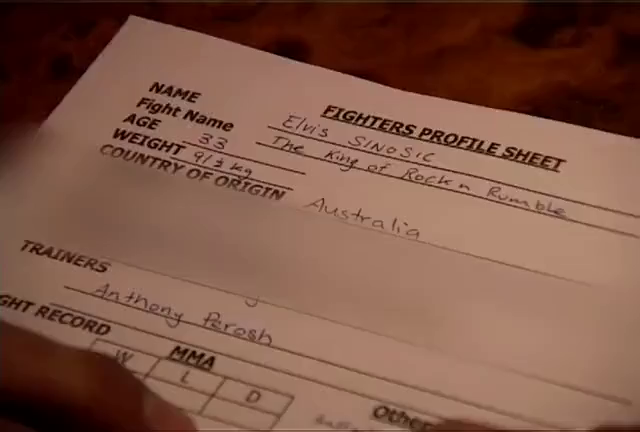 FIGHTERS PROFILE SHEET
NAME Elvis SINOSIC
Fight Name The King of Rock n Rumble
AGE 33
WEIGHT 91½ kg
COUNTRY OF ORIGIN Australia
TRAINERS
Anthony Perosh
GHT RECORD
MMA
W L D
Other